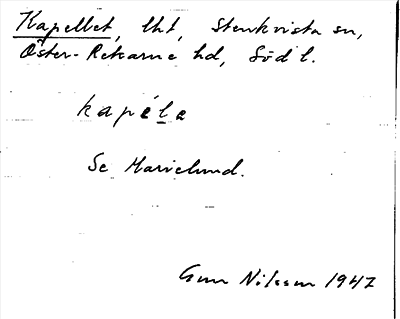 Kapellet, lht, Stenkvista sn,
Öster-Rekarne hd, Södl.
kapéla
Se Marielund.
Gun Nilsson 1947